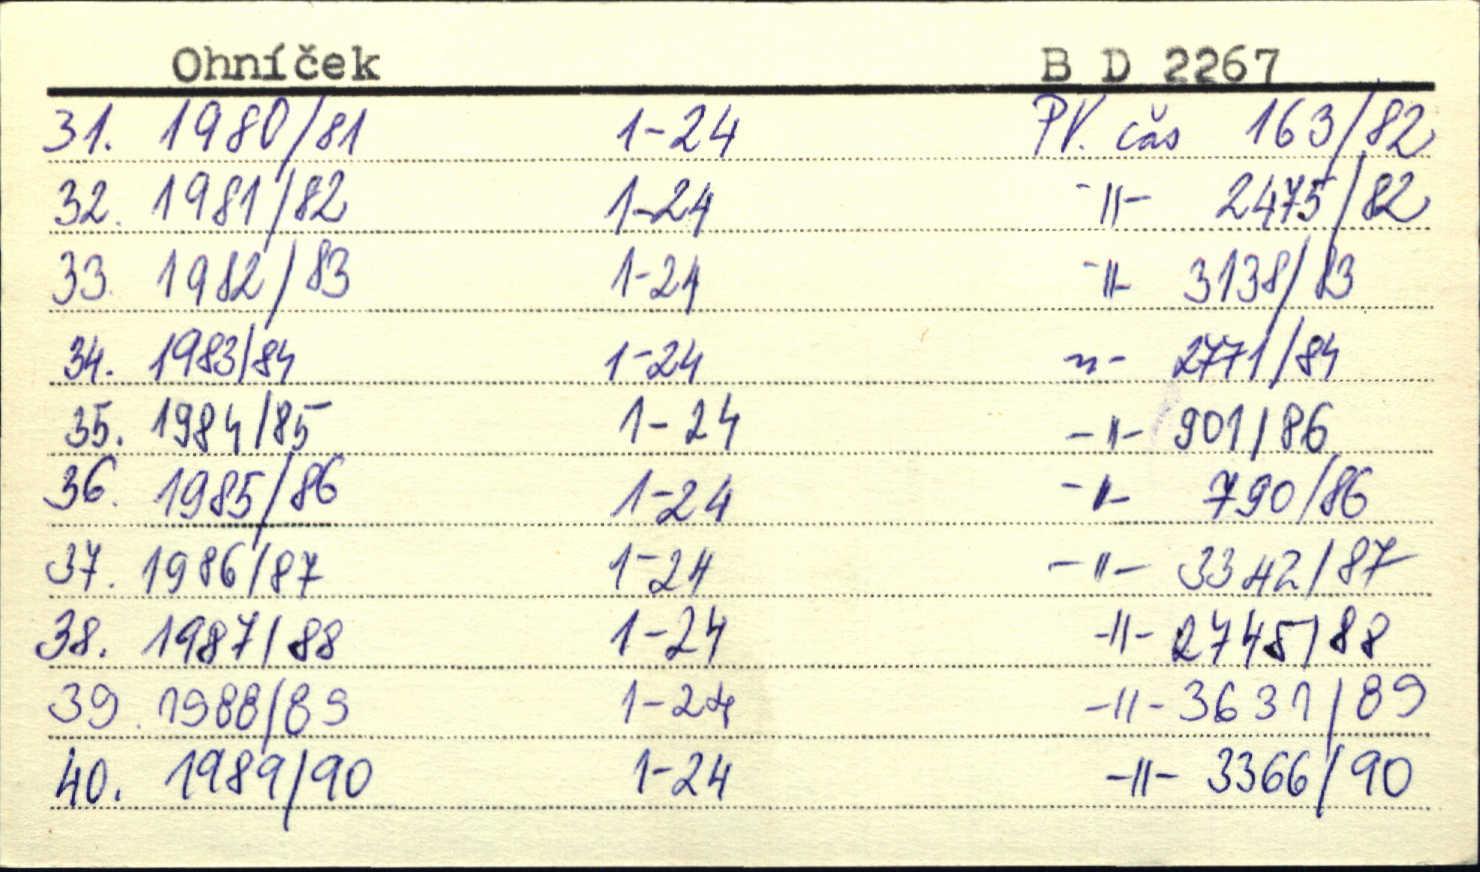 Ohníček B D 2267
31. 1980/81 1-24 PV. čas 163/82
32. 1981/82 1-24 -||- 2475/82
33. 1982/83 1-24 -||- 3138/83
34. 1983/84 1-24 -"- 2771/84
35. 1984/85 1-24 -||- 901/86
36. 1985/86 1-24 -||- 790/86
37. 1986/87 1-24 -||- 3342/87
38. 1987/88 1-24 -||- 2745/88
39. 1988/89 1-24 -||- 3631/89
40. 1989/90 1-24 -||- 3366/90